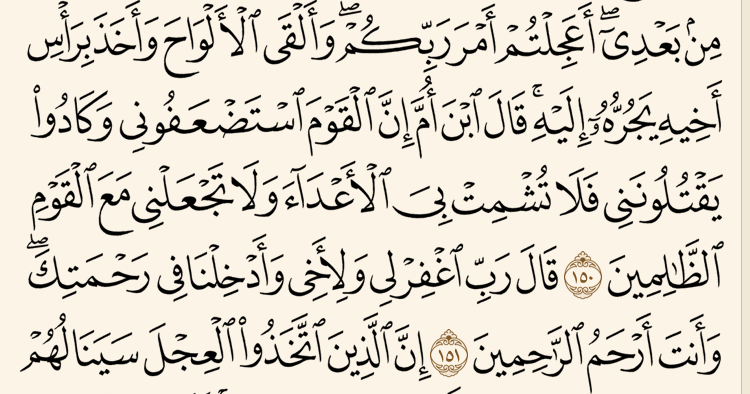 مِنۢ بَعۡدِيٓۖ أَعَجِلۡتُمۡ أَمۡرَ رَبِّكُمۡۖ وَأَلۡقَى ٱلۡأَلۡوَاحَ وَأَخَذَ بِرَأۡسِ
أَخِيهِ يَجُرُّهُۥٓ إِلَيۡهِۚ قَالَ ٱبۡنَ أُمَّ إِنَّ ٱلۡقَوۡمَ ٱسۡتَضۡعَفُونِي وَكَادُواْ
يَقۡتُلُونَنِي فَلَا تُشۡمِتۡ بِيَ ٱلۡأَعۡدَآءَ وَلَا تَجۡعَلۡنِي مَعَ ٱلۡقَوۡمِ
ٱلظَّٰلِمِينَ ١٥٠ قَالَ رَبِّ ٱغۡفِرۡ لِي وَلِأَخِي وَأَدۡخِلۡنَا فِي رَحۡمَتِكَۖ
وَأَنتَ أَرۡحَمُ ٱلرَّٰحِمِينَ ١٥١ إِنَّ ٱلَّذِينَ ٱتَّخَذُواْ ٱلۡعِجۡلَ سَيَنَالُهُمۡ